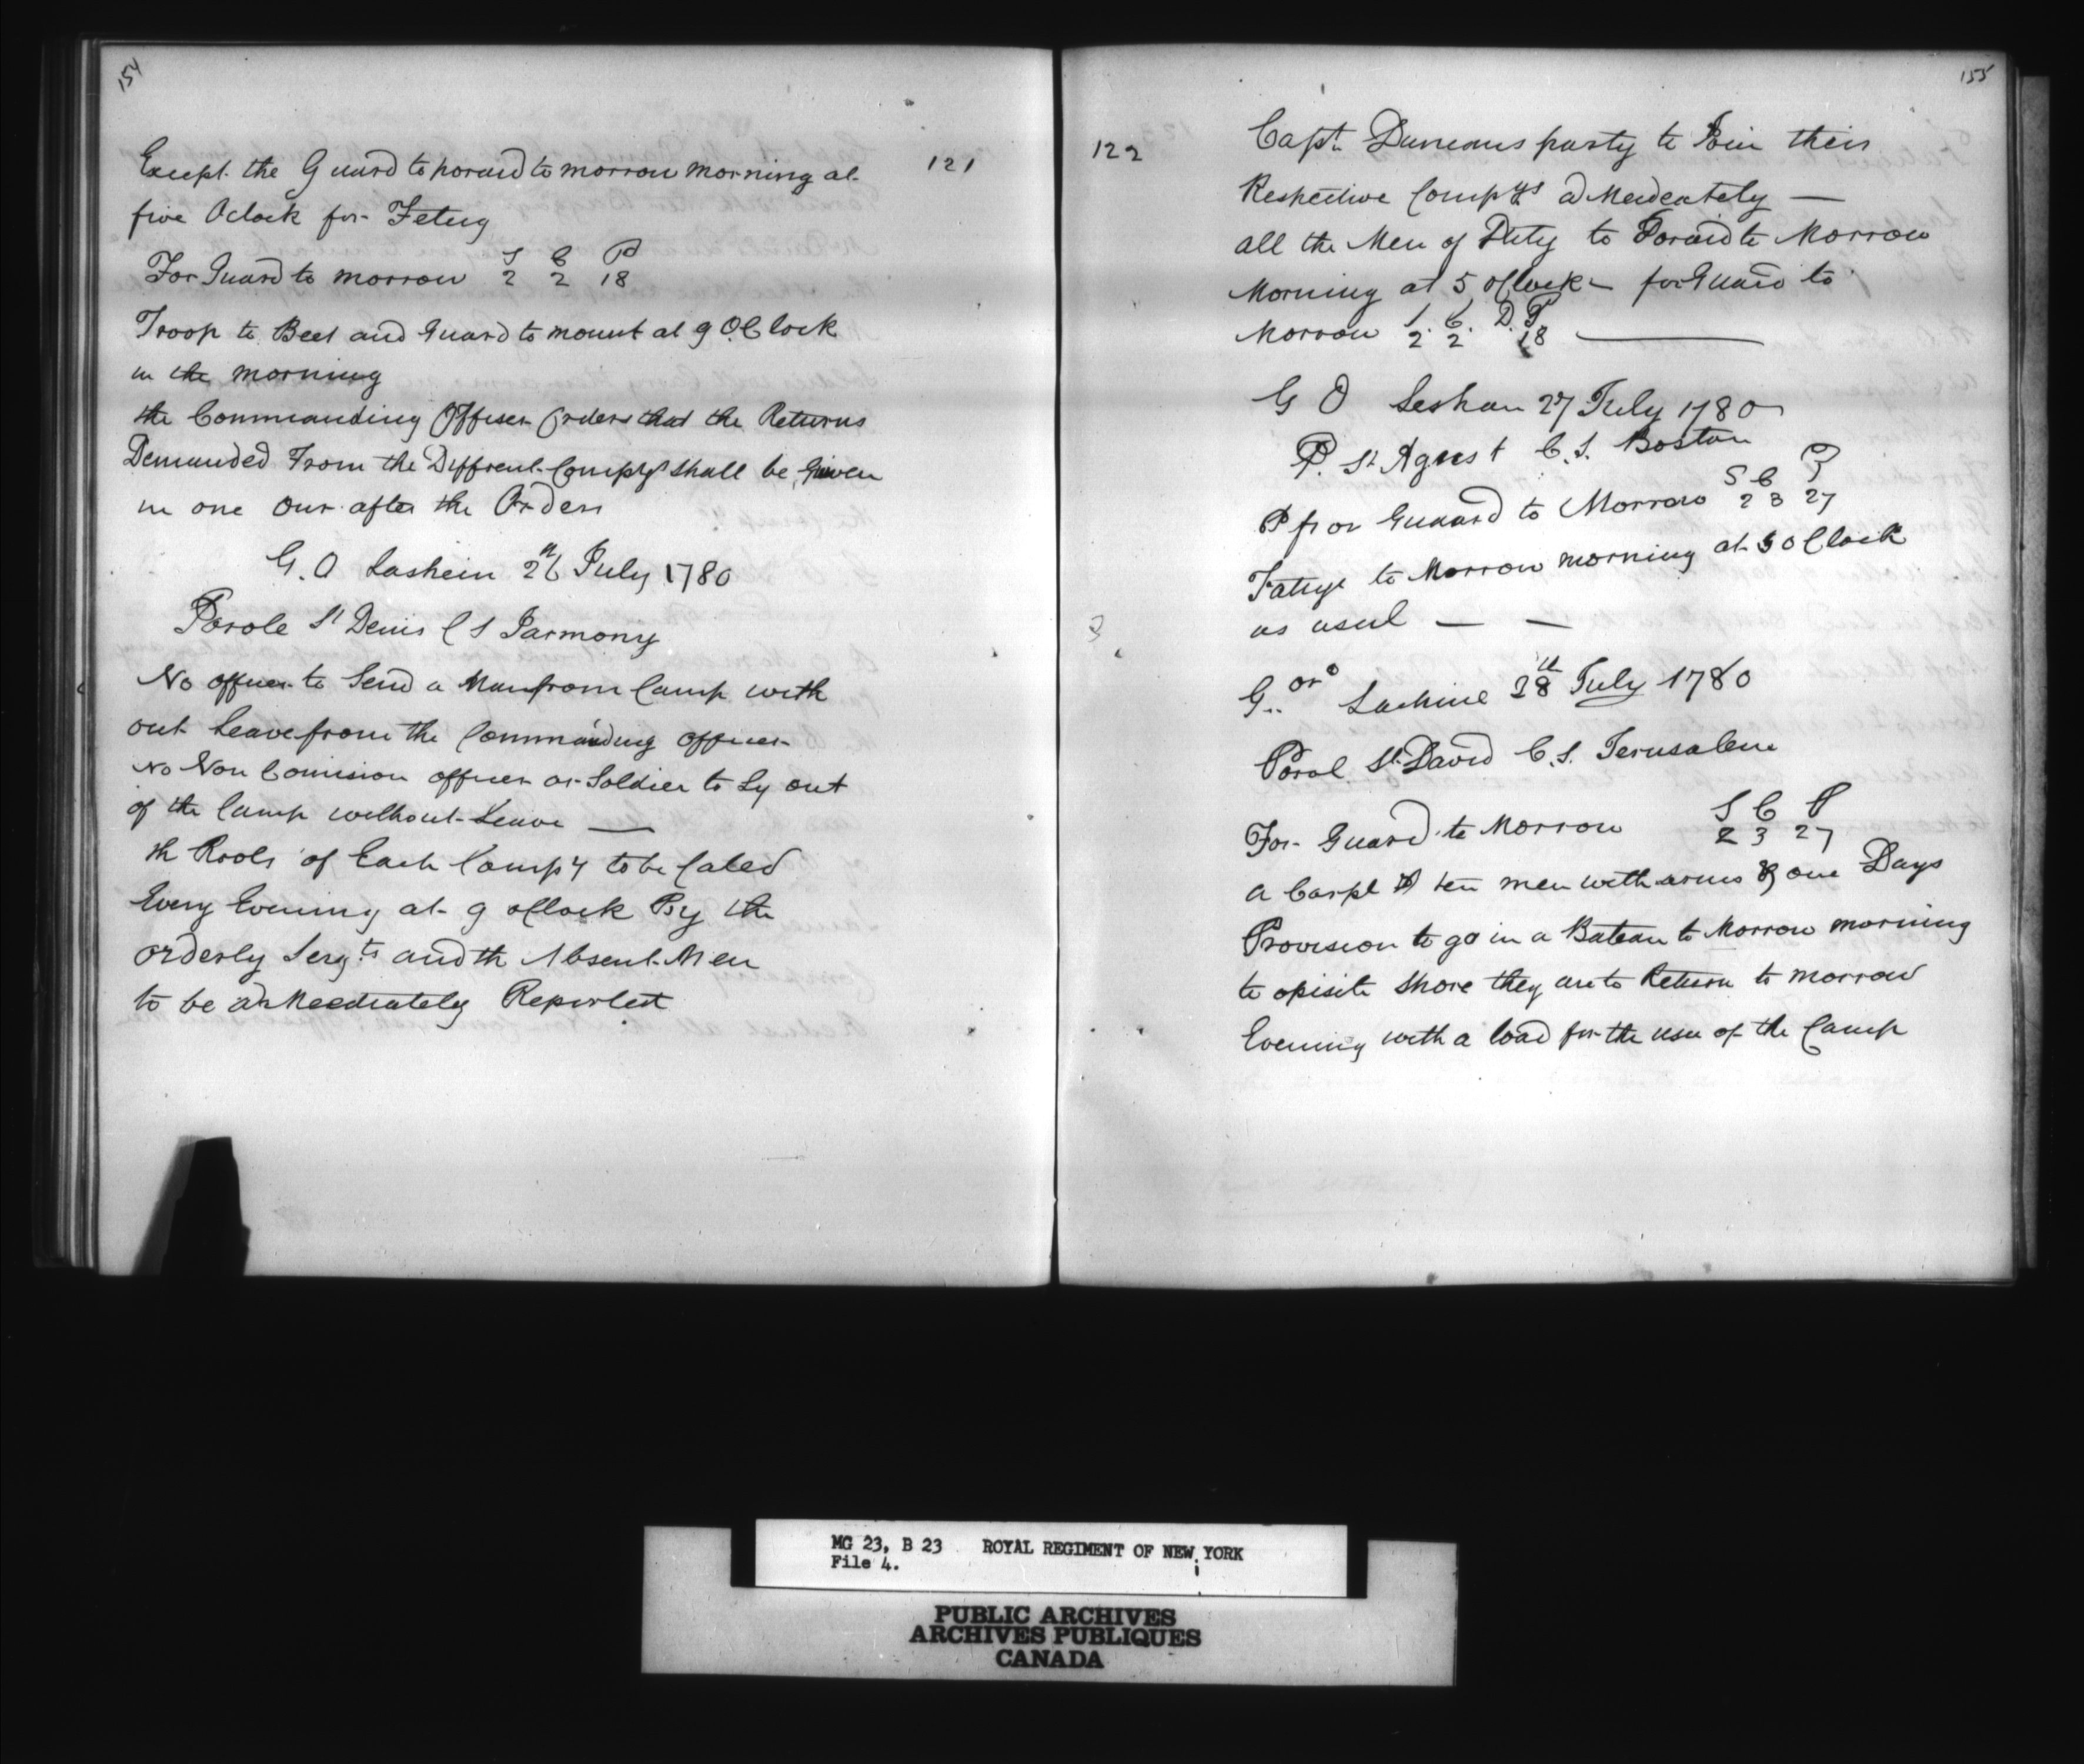 154
121
Except the Guard to poraid to morrow morning at
five Oclock for Feteug
S C P
For Guard to morrow 2 2 18
Troop to Beet and Guard to mount at 9 O.Clock
in the morning
the Commanding Offiser Orders that the Returns
Demanded From the Diffrent Compys shall be Given
in one Our after the Orders
G. O Lashein 26th July 1780
Parole St Denis C S Jarmony
No officer to Send a Man from Camp with
out Leave from the Commanding officer
No Non Comision officer or Soldier to Ly out
of the Camp without Leave —
th Rools of Each Compy to be Caled
Every Evening at 9 oClock By the
Orderly Sergts and th Absent Men
to be admeediately Reported
155
122
Capt. Duncans party to Join their
Respective Compys admeideately —
all the Men of Duty to Poraid to Morrow
Morning at 5 oClock — for Guard to
Morrow S. C. D. P
2 2 18 —
G O Leshan 27 July 1780
P. St Agust C. S. Boston
S C P
P for Guuard to Morrow 2 3 27
Fatuge to Morrow morning at 5 oClock
as usul — —
G.. Ors Lachine 28th July 1780
Parol St David C. S. Jerusalem
S C P
For Guard to Morrow 2 3 27
a Corpl & ten men with arms & one Days
Provision to go in a Bateau to Morrow morning
to opisite Shore they are to Return to morrow
Evening with a load for the use of the Camp
MG 23, B 23 ROYAL REGIMENT OF NEW YORK
File 4.
PUBLIC ARCHIVES
ARCHIVES PUBLIQUES
CANADA